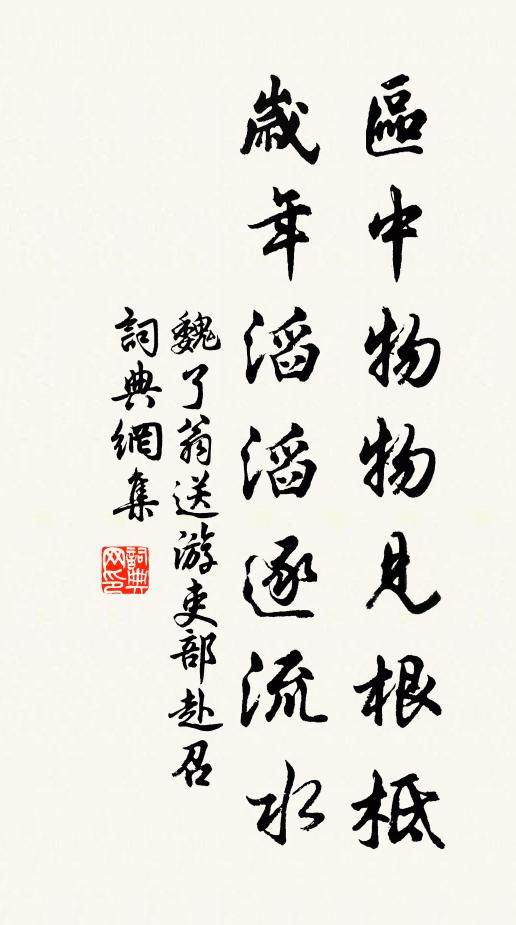 區中物物見根柢
歲年滔滔逐流水
魏了翁送游吏部赴召
詞典網集
詞典网印